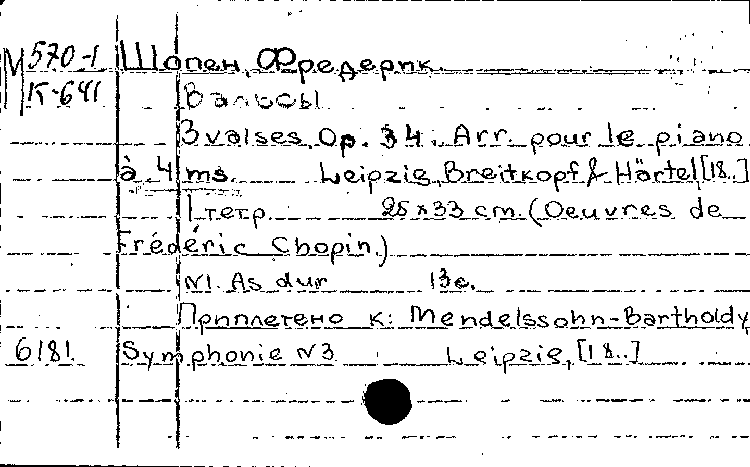 М 570-1 Шопен, Фредерик.
К-641 Вальсы
3 valses, Op. 34. Arr. pour le piano
à 4 ms. Leipzig, Breitkopf & Härtel, [18..]
1 тетр. 25x33 cm. (Oeuvres de
Frédéric Chopin.)
N1. As dur 13с.
Приплетено к: Mendelssohn-Bartholdy,
6181 Symphonie N3 Leipzig, [18..]